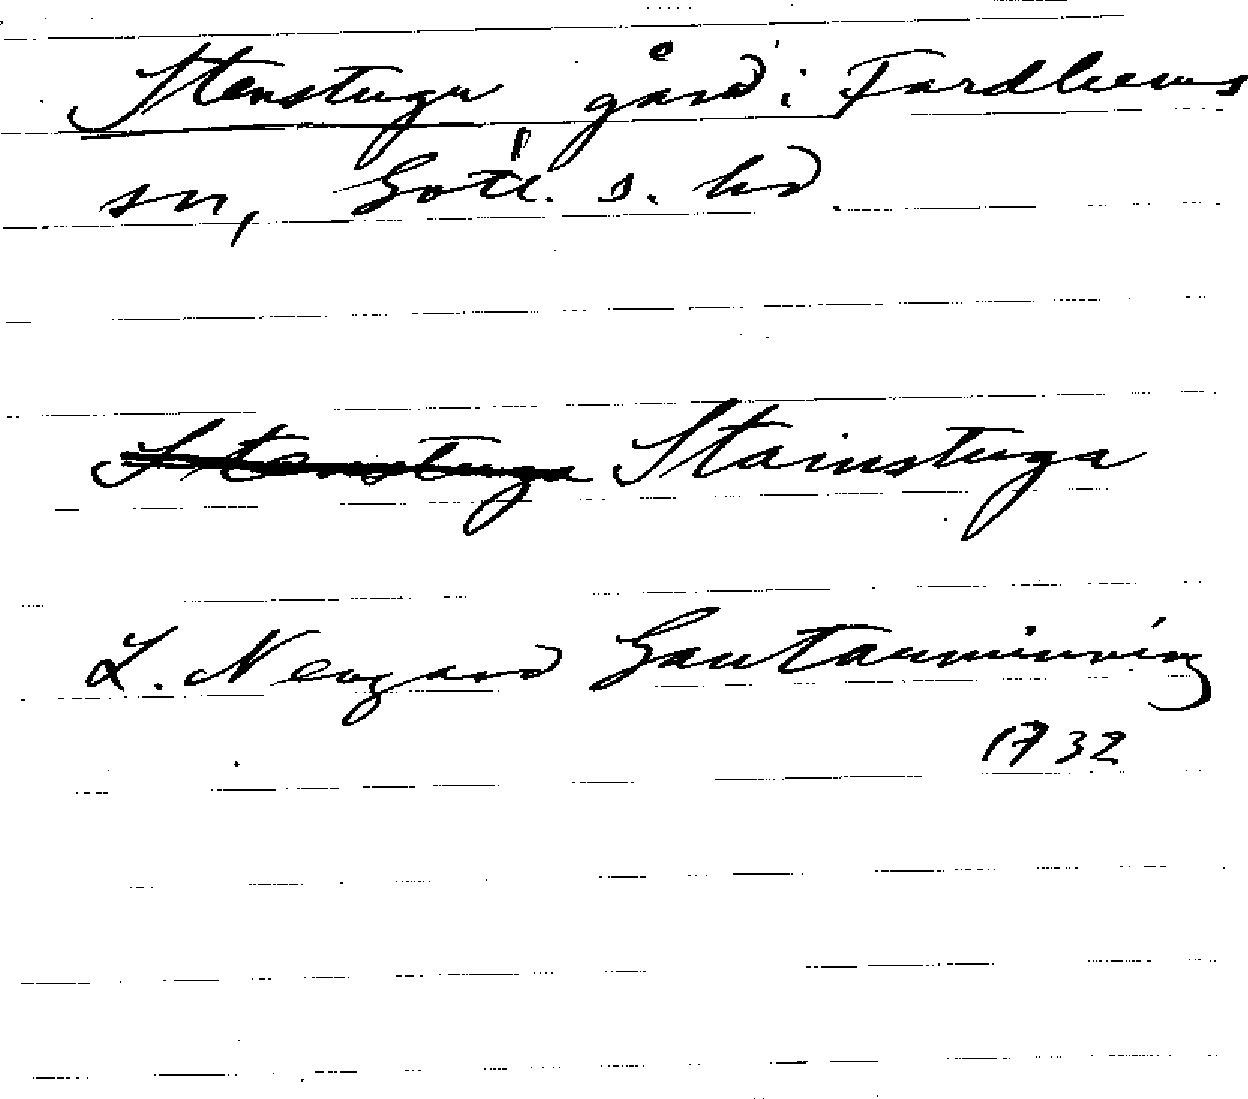 Stenstugu gård i Fardhems
sn, Gotl. s. hd
Stenstuga Stainstuga
L. Neogard Gautauminning
1732